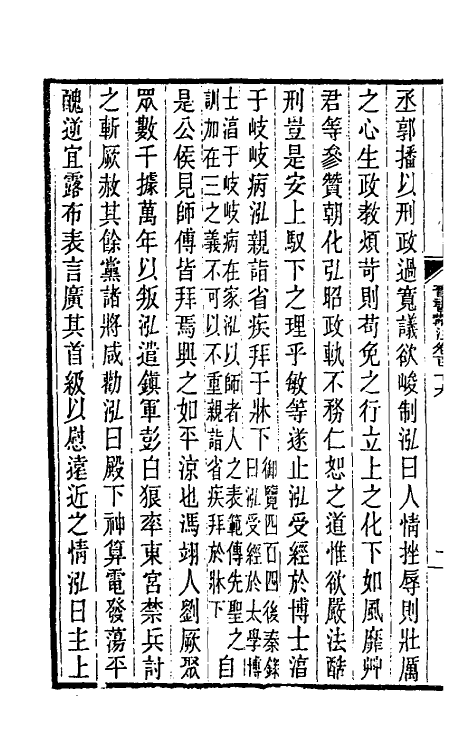 晉書斠注卷百十九
丞郭播以刑政過寬議欲峻制泓曰人情挫辱則壯厲
之心生政教煩苛則苟免之行立上之化下如風靡艸
君等參贊朝化弘昭政軌不務仁恕之道惟欲嚴法酷
刑豈是安上馭下之理乎敏等遂止泓受經於博士湻
于岐岐病泓親詣省疾拜于牀下御覽四百四後秦錄
曰泓受經於太學博
士湻于岐岐病在家泓以師者人之表範傳先聖之
訓加在三之義不可以不重親詣省疾拜於牀下
自
是公侯見師傅皆拜焉興之如平涼也馮翊人劉厥聚
眾數千據萬年以叛泓遣鎮軍彭白狼率東宮禁兵討
之斬厥赦其餘黨諸將咸勸泓曰殿下神算電發蕩平
醜逆宜露布表言廣其首級以慰遠近之情泓曰主上